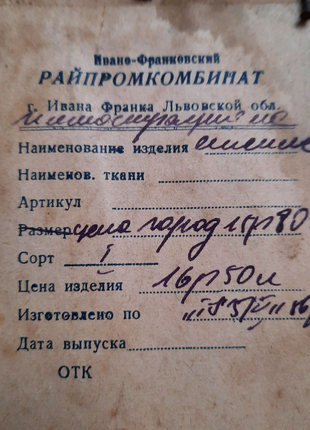 Ивано-Франковский
РАЙПРОМКОМБИНАТ
г. Ивана Франка Львовской обл.
Наименование изделия
Наимеков. ткани
Артикул
Размер цена город 15р80
Сорт I
Цена изделия 16р50к
Изготовлено по
Дата выпуска
ОТК